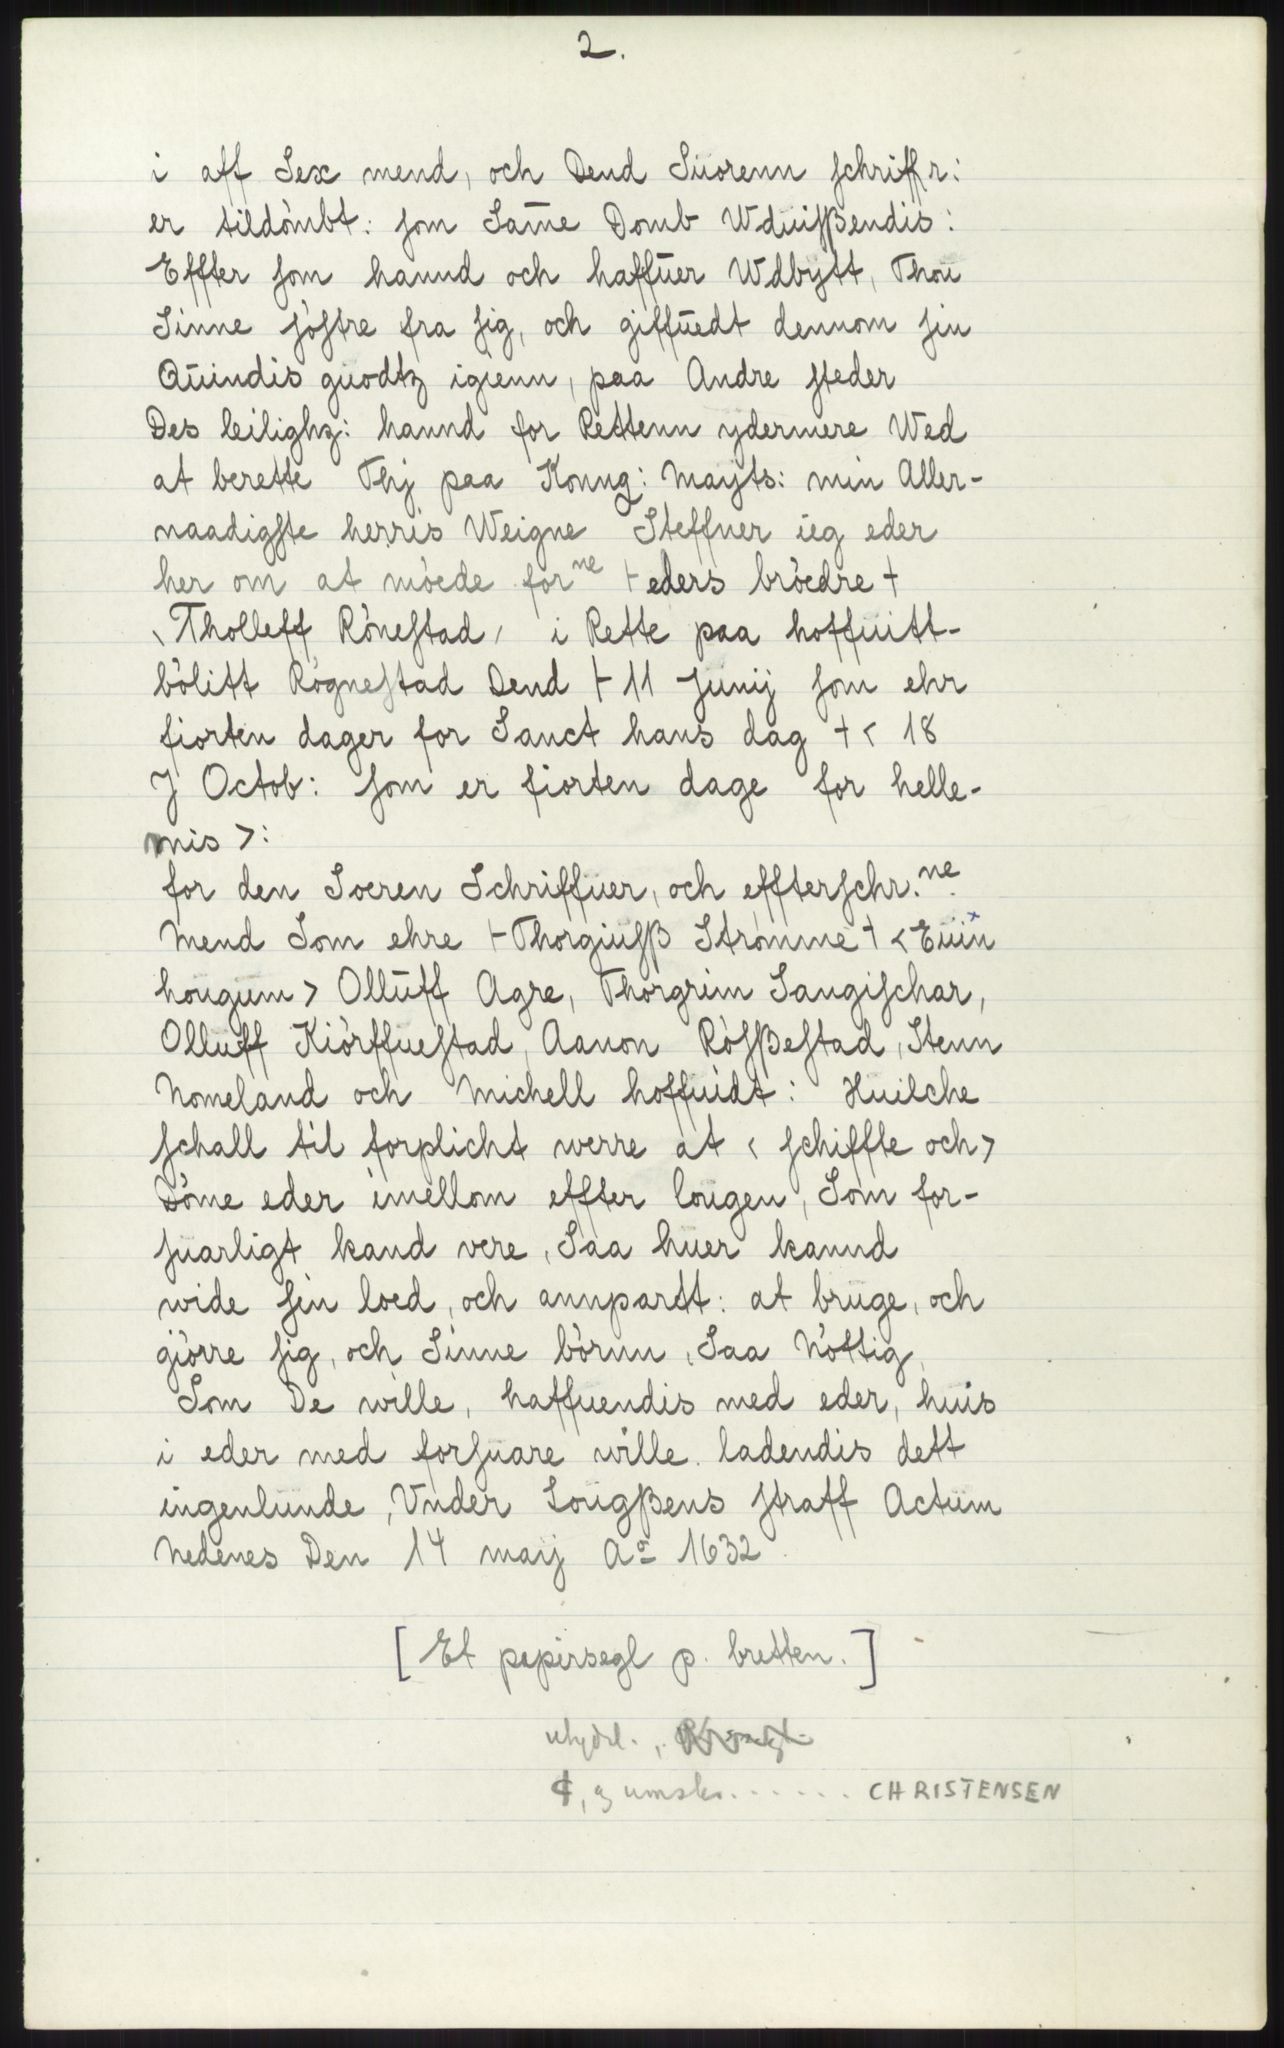 2.
i aff Sex mend, och Dend Suorenn schriffr:
er tildömbt: som Sam̄e Domb Wduisßendis:
Effter som hannd och haffuer Wdbytt, Thou
Sinne söstre fra sig, och giffuedt dennom sin
Quindis guodtz igienn, paa Andre steder
Des leilighz: hannd for Rettenn ydermere Wed
at berette Thj paa Konng: Mayts: min Aller-
naadigste herris Weigne Steffner ieg eder
her om at möede for ne ⊢ eders bröedre +
‹ Tholleff Rönestad, i Rette paa hoffuitt-
bölitt Rögnestad Dend ⊢ 11 Junij som ehr
fiorten dager for Sanct hans dag + < 18
J Octob: som er fiorten dage for helle-
mis >:
for den Soeren Schriffuer, och effterschr. ne
Mend Som ehre ⊢ Thorgiuſß Strömme + < Euin x
hougum > Olluff Agre, Thorgrim Langischar,
Olluff Kiörffuestad, Aanon Rösßestad, Stenn
Nomeland och Michell hoffuidt: Huilche
schall til forplicht werre at < schiffte och >
Döme eder imellom effter lougen, Som for-
suarligt kand vere, Saa huer kannd
wide sin loed, och annpardt: at bruge, och
giörre sig, och Sinne börnn, Saa Nöttig,
Som De wille, haffuendis med eder, huis
i eder med forsuare wille. ladendis dett
ingenlunde, Vnder Lougßens straff Actum
Nedenes Den 14 maij Aº 1632.
[ Et papirsegl p. bretten. ]
CHRISTENSEN